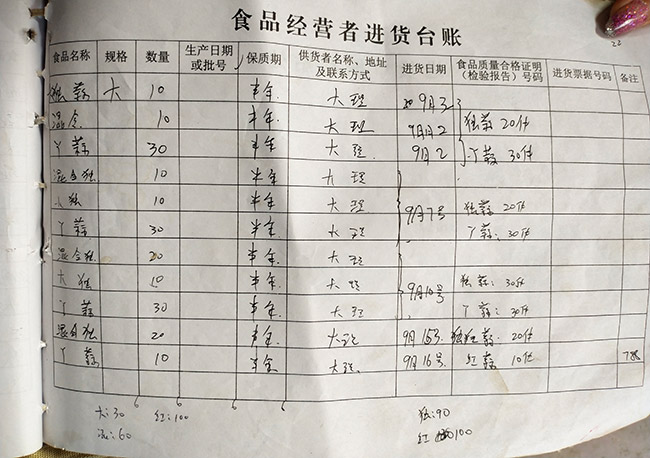 食品经营者进货台账
22
食品名称 规格 数量 生产日期或批号 保质期 供货者名称、地址及联系方式 进货日期 食品质量合格证明（检验报告）号码 进货票据号码 备注
独蒜 大 10 半年 大理 9月2
混合 10 半年 大理 9月2 独蒜 20件
丫蒜 30 半年 大理 9月2 丫蒜 30件
混合独 10 半年 大理
小独 10 半年 大理 9月7号 独蒜 20件
丫蒜 30 半年 大理 丫蒜: 30件
混合独 20 半年 大理
大独 10 半年 大理 9月10号 独蒜: 30件
丫蒜 30 半年 大理 丫蒜: 30件
混合独 20 半年 大理 9月15号 独蒜: 20件
丫蒜 10 半年 大理 9月16号 红蒜 10件
大:30 红:100 独:90
混:60 红 100